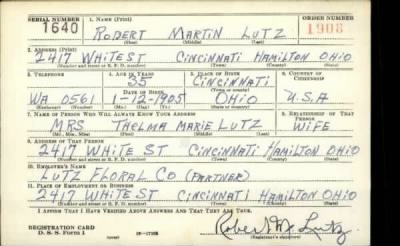 SERIAL NUMBER 1. NAME (Print) ORDER NUMBER
1640 ROBERT MARTIN LUTZ 1908
(First) (Middle) (Last)
2. ADDRESS (Print)
2417 WHITE ST CINCINNATI HAMILTON OHIO
(Number and street or R. F. D. number) (Town) (County) (State)
3. TELEPHONE 4. AGE IN YEARS 5. PLACE OF BIRTH 6. COUNTRY OF CITIZENSHIP
35 CINCINNATI
DATE OF BIRTH
WA 0561 1-12-1905 OHIO U.S.A
(Exchange) (Number) (Mo.) (Day) (Yr.) (State or country)
7. NAME OF PERSON WHO WILL ALWAYS KNOW YOUR ADDRESS 8. RELATIONSHIP OF THAT PERSON
MRS THELMA MARIE LUTZ WIFE
(Mr., Mrs., Miss) (First) (Middle) (Last)
9. ADDRESS OF THAT PERSON
2417 WHITE ST CINCINNATI HAMILTON OHIO
(Number and street or R. F. D. number) (Town) (County) (State)
10. EMPLOYER'S NAME
LUTZ FLORAL CO (PARTNER)
11. PLACE OF EMPLOYMENT OR BUSINESS
2417 WHITE ST CINCINNATI HAMILTON OHIO
(Number and street or R. F. D. number) (Town) (County) (State)
I AFFIRM THAT I HAVE VERIFIED ABOVE ANSWERS AND THAT THEY ARE TRUE.
REGISTRATION CARD
D. S. S. Form 1 Robert M Lutz
(Registrant's signature)